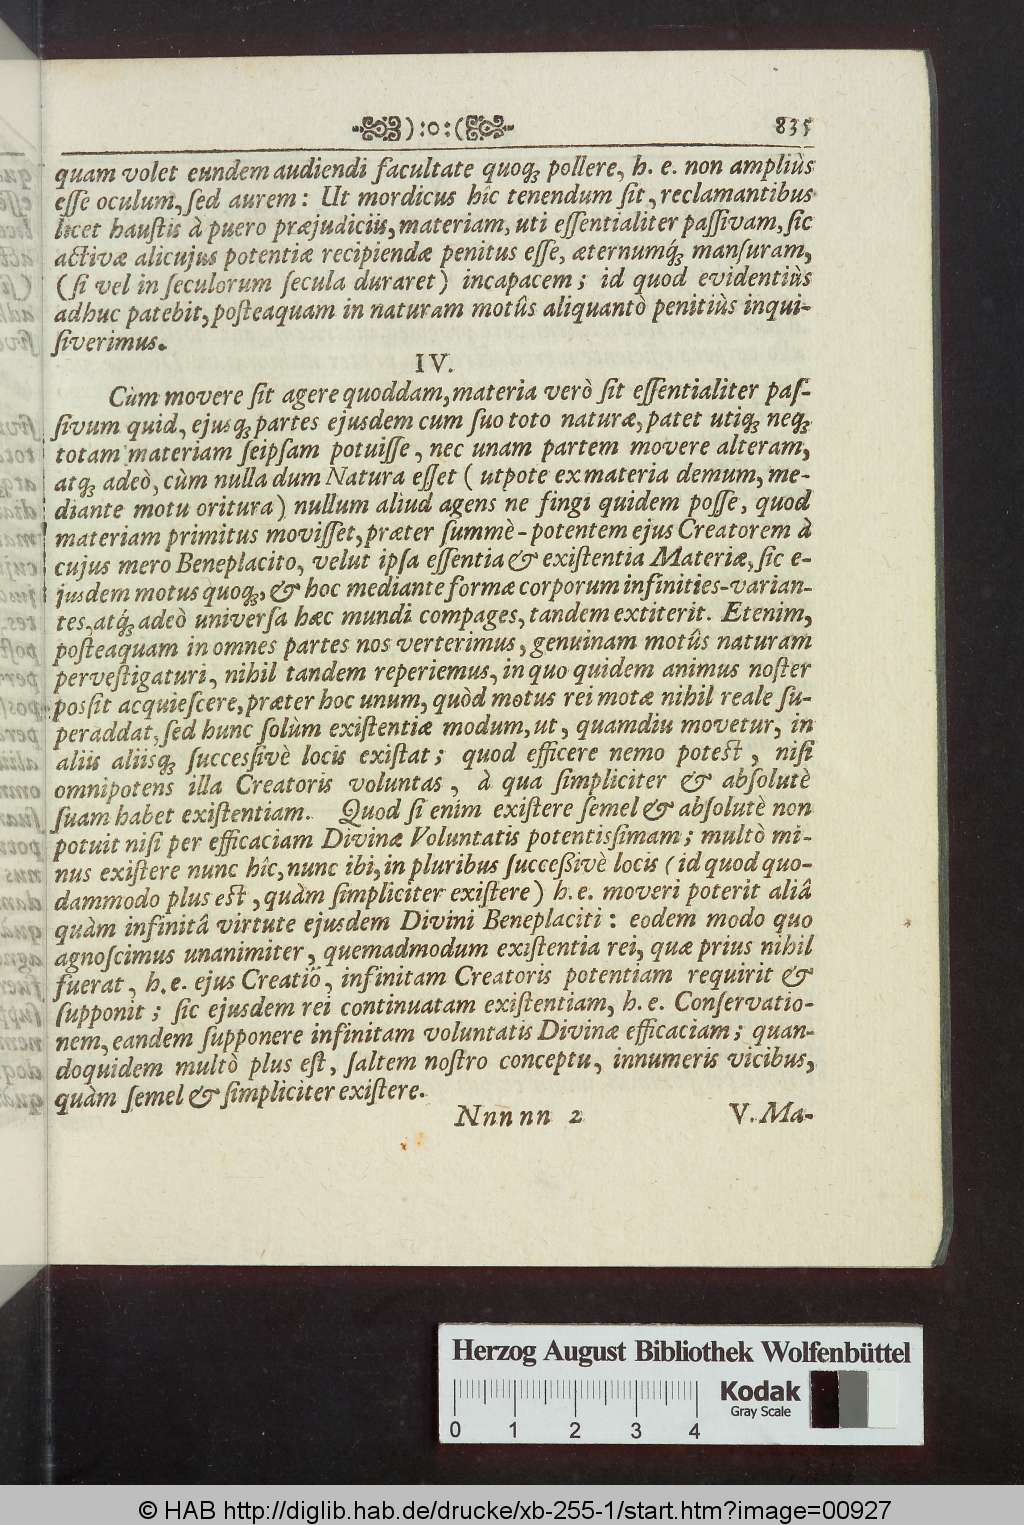 ):o:( 835
quam volet eundem audiendi facultate quoqꝫ pollere, h. e. non ampliùs
eſſe oculum, ſed aurem: Ut mordicus hîc tenendum ſit, reclamantibus
licet hauſtis à puero præjudiciis, materiam, uti eſſentialiter paſſivam, ſic
activæ alicujus potentiæ recipiendæ penitus eſſe, æternumq́ꝫ manſuram,
(ſi vel in ſeculorum ſecula duraret) incapacem; id quod evidentiùs
adhuc patebit, poſteaquam in naturam motûs aliquantò penitiùs inqui-
ſiverimus.
IV.
Cùm movere ſit agere quoddam, materia verò ſit eſſentialiter paſ-
ſivum quid, ejusqꝫ partes ejusdem cum ſuo toto naturæ, patet utiqꝫ neqꝫ
totam materiam ſeipſam potuiſſe, nec unam partem movere alteram,
atqꝫ adeò, cùm nulla dum Natura eſſet (utpote ex materia demum, me-
diante motu oritura) nullum aliud agens ne fingi quidem poſſe, quod
materiam primitus moviſſet, præter ſummè-potentem ejus Creatorem à
cujus mero Beneplacito, velut ipſa eſſentia & exiſtentia Materiæ, ſic e-
jusdem motus quoqꝫ, & hoc mediante formæ corporum infinities-varian-
tes, atq́ꝫ adeò univerſa hæc mundi compages, tandem extiterit. Etenim,
poſteaquam in omnes partes nos verterimus, genuinam motûs naturam
perveſtigaturi, nihil tandem reperiemus, in quo quidem animus noſter
posſit acquieſcere, præter hoc unum, quòd motus rei motæ nihil reale ſu-
peraddat, ſed hunc ſolùm exiſtentiæ modum, ut, quamdiu movetur, in
aliis aliisqꝫ ſuccesſivè locis exiſtat; quod efficere nemo poteſt, niſi
omnipotens illa Creatoris voluntas, à qua ſimpliciter & abſolutè
ſuam habet exiſtentiam. Quod ſi enim exiſtere ſemel & abſolutè non
potuit niſi per efficaciam Divinæ Voluntatis potentisſimam; multò mi-
nus exiſtere nunc hîc, nunc ibi, in pluribus ſucceſſivè locis (id quod quo-
dammodo plus eſt, quàm ſimpliciter exiſtere) h. e. moveri poterit aliâ
quàm infinitâ virtute ejusdem Divini Beneplaciti: eodem modo quo
agnoſcimus unanimiter, quemadmodum exiſtentia rei, quæ prius nihil
fuerat, h. e. ejus Creatiō, infinitam Creatoris potentiam requirit &
ſupponit; ſic ejusdem rei continuatam exiſtentiam, h. e. Conſervatio-
nem, eandem ſupponere infinitam voluntatis Divinæ efficaciam; quan-
doquidem multò plus eſt, ſaltem noſtro conceptu, innumeris vicibus,
quàm ſemel & ſimpliciter exiſtere.
Nnnnn 2 V. Ma-
Herzog August Bibliothek Wolfenbüttel
Kodak
Gray Scale
0 1 2 3 4
© HAB http://diglib.hab.de/drucke/xb-255-1/start.htm?image=00927